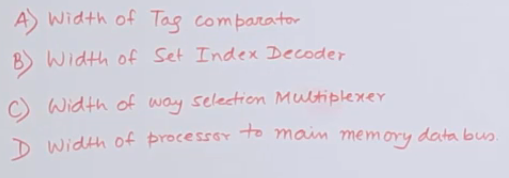 A) Width of Tag comparator
B) Width of Set Index Decoder
C) Width of way selection Multiplexer
D Width of processor to main memory data bus.